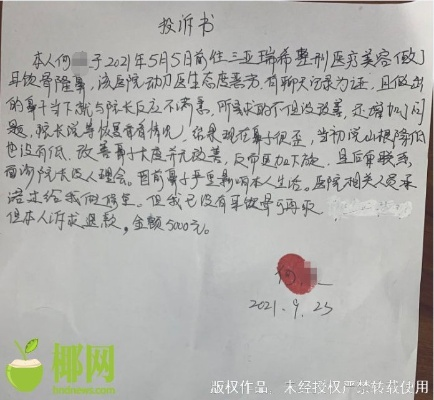 投诉书
本人何 于2021年5月5日前往三亚瑞希整形医疗美容做了
耳软骨隆鼻,该医院动刀医生态度恶劣,有聊天记录为证,且做出
的鼻子当下就与院长反应不满意,所承诺的不但没改善,还增加了问
题,院长说等恢复看看情况,结果现在鼻子很歪,当初说山根降低
也没有低,改善鼻子长度并无改善,反而
咨询院长没人理会。目前鼻子严重影响本人生活。医院相关人员承
诺过给我做修复。但我已没有耳软骨可再取
但本人诉求退款,金额5000元。
何
2021.9.23
椰网
hndnews.com
版权作品 未经授权严禁转载使用